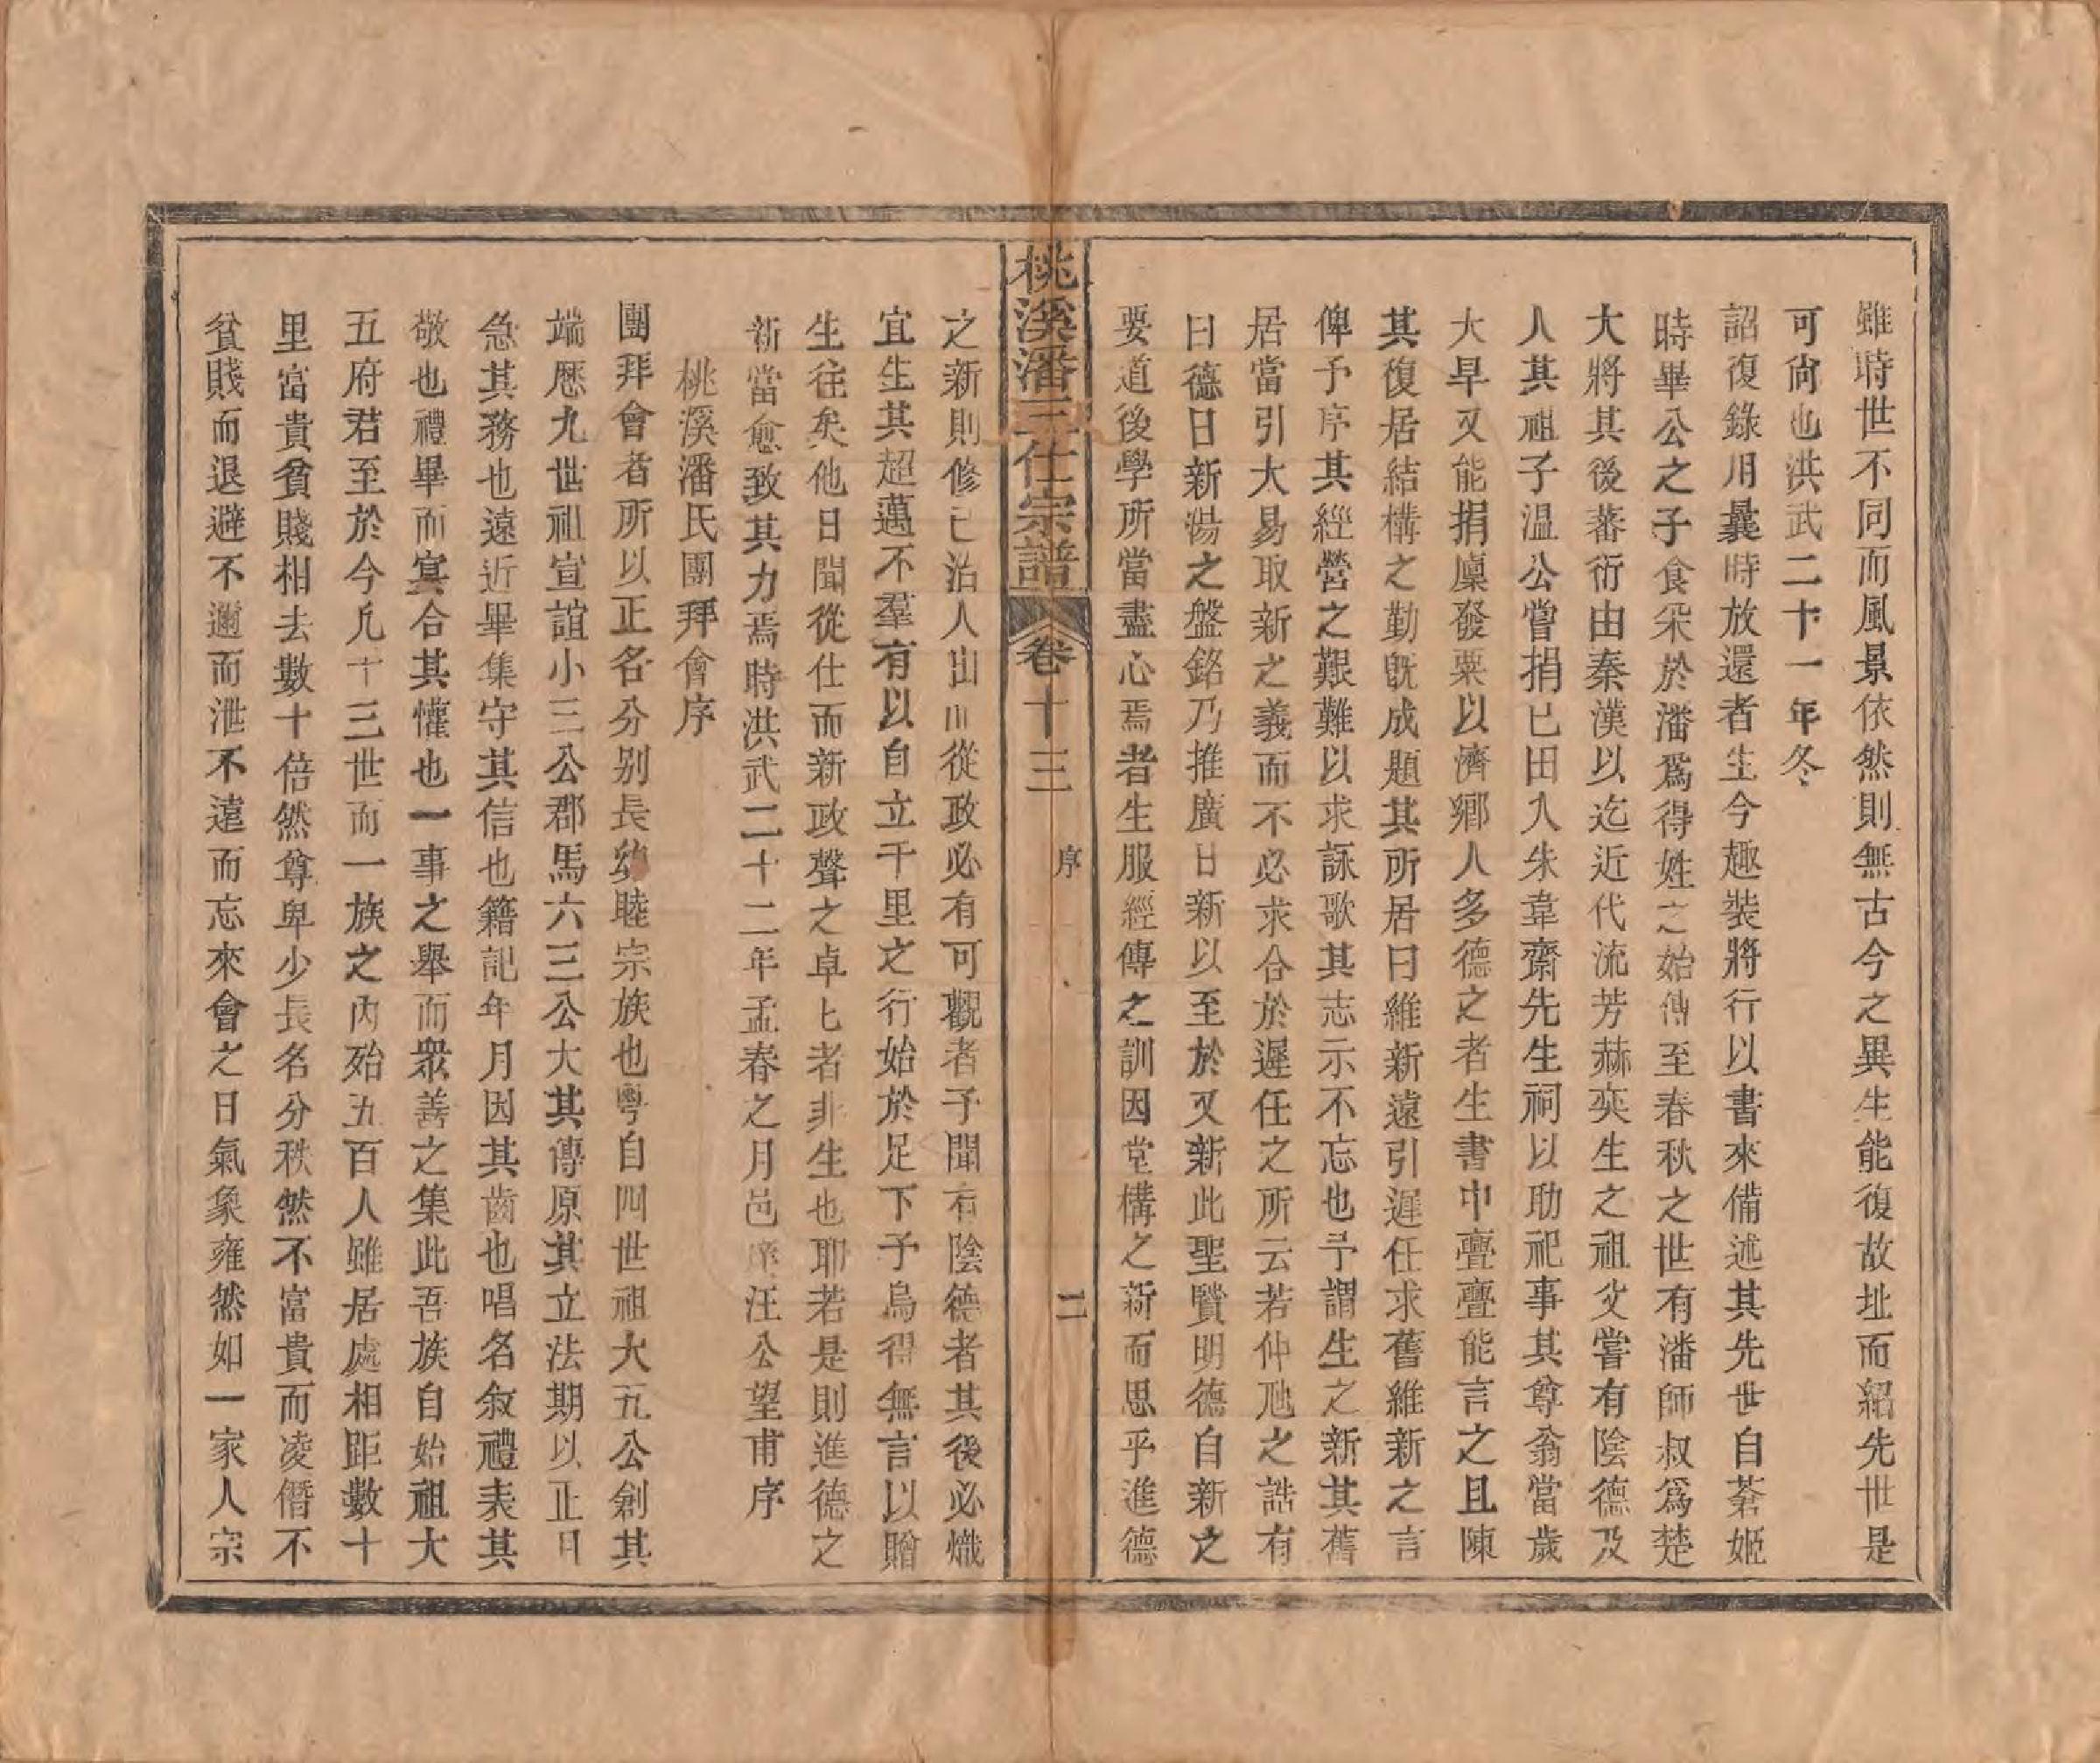 雖時世不同而風景依然則無古今之異生能復故址而紹先世是
可尙也洪武二十一年冬
詔復錄用曩時放還者生今趣裝將行以書來備述其先世自蒼姬
時畢公之子食采於潘爲得姓之始傳至春秋之世有潘師叔爲楚
大將其後蕃衍由秦漢以迄近代流芳赫奕生之祖父嘗有陰德及
人其祖子溫公嘗捐已田入朱韋齋先生祠以助祀事其尊翁當歲
大旱又能捐廩發粟以濟鄉人多德之者生書中亹亹能言之且陳
其復居結構之勤旣成題其所居曰維新遠引遲任求舊維新之言
俾予序其經營之艱難以求詠歌其志示不忘也予謂生之新其舊
居當引大易取新之義而不必求合於遲任之所云若仲虺之誥有
曰德日新湯之盤銘乃推廣日新以至於又新此聖賢明德自新之
要道後學所當盡心焉者生服經傳之訓因堂構之新而思乎進德
桃溪潘三仕宗譜 卷十三 序 二
之新則修已治人出而從政必有可觀者予聞有陰德者其後必熾
宜生其超邁不羣有以自立千里之行始於足下予烏得無言以贈
生往矣他日聞從仕而新政聲之卓匕者非生也耶若是則進德之
新當愈致其力焉時洪武二十二年孟春之月邑庠汪公望甫序
桃溪潘氏團拜會序
團拜會者所以正名分别長幼睦宗族也粤自四世祖大五公創其
端歷九世祖宣誼小三公郡馬六三公大其傳原其立法期以正日
急其務也遠近畢集守其信也籍記年月因其齒也唱名敘禮表其
敬也禮畢而宴合其懽也一事之舉而衆善之集此吾族自始祖大
五府君至於今凡十三世而一族之内殆五百人雖居處相距數十
里富貴貧賤相去數十倍然尊卑少長名分秩然不富貴而凌僭不
貧賤而退避不邇而泄不遠而忘來會之日氣象雍然如一家人宗